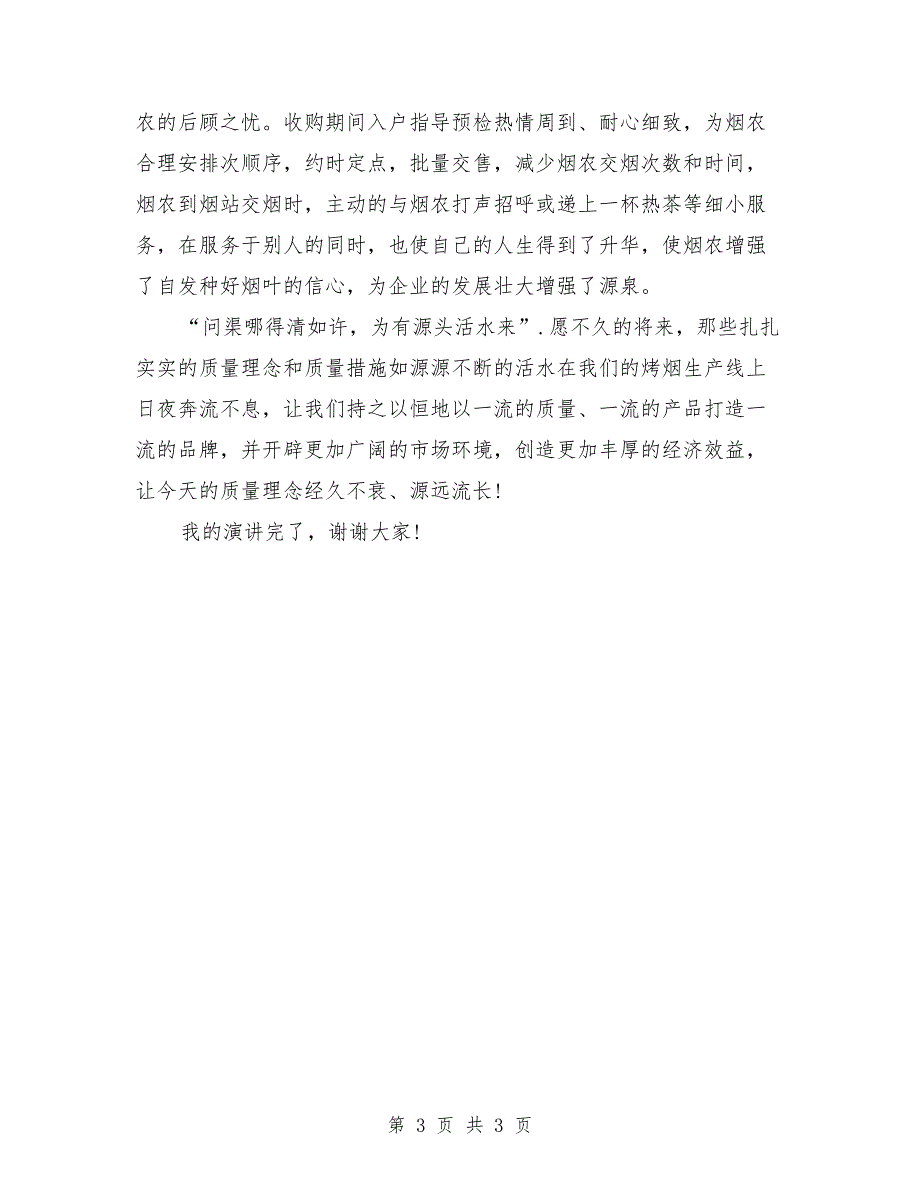 农的后顾之忧。收购期间入户指导预检热情周到、耐心细致，为烟农
合理安排次顺序，约时定点，批量交售，减少烟农交烟次数和时间，
烟农到烟站交烟时，主动的与烟农打声招呼或递上一杯热茶等细小服
务，在服务于别人的同时，也使自己的人生得到了升华，使烟农增强
了自发种好烟叶的信心，为企业的发展壮大增强了源泉。
“问渠哪得清如许，为有源头活水来”.愿不久的将来，那些扎扎
实实的质量理念和质量措施如源源不断的活水在我们的烤烟生产线上
日夜奔流不息，让我们持之以恒地以一流的质量、一流的产品打造一
流的品牌，并开辟更加广阔的市场环境，创造更加丰厚的经济效益，
让今天的质量理念经久不衰、源远流长!
我的演讲完了，谢谢大家!
第 3 页 共 3 页